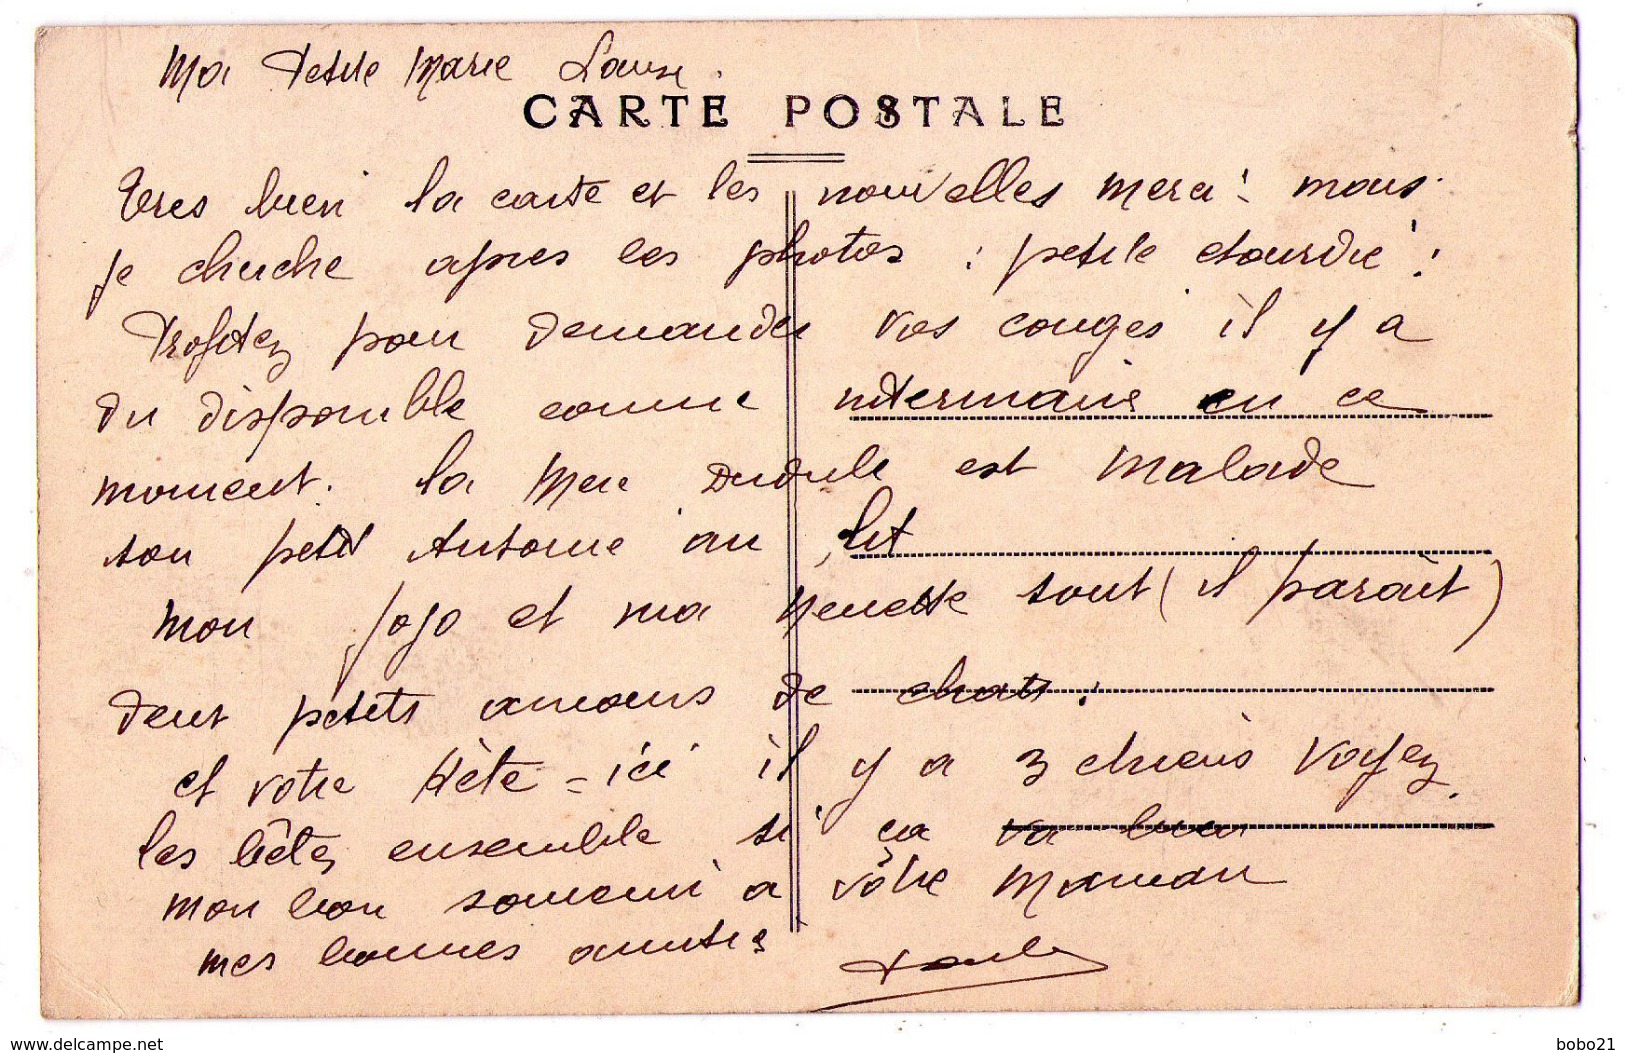 Ma Petite Marie Louise.
CARTE POSTALE
Très bien la carte et les nouvelles merci ! mais
je cherche après les photos : petite etourdie !
Profitez pour demander vos congés il y a
du disponible comme intermaire en ce
moment. la Mere Dudule est malade
son petit Antoine au lit
mon Jojo et ma Nenette sont (il paraît)
deux petits amours de chats :
et votre bête = ici il y a 3 chiens voyez
les bêtes ensemble si ça va bien
mon bon souvenir a vôtre Maman
mes bonnes amitiés
delcampe.net
bobo21